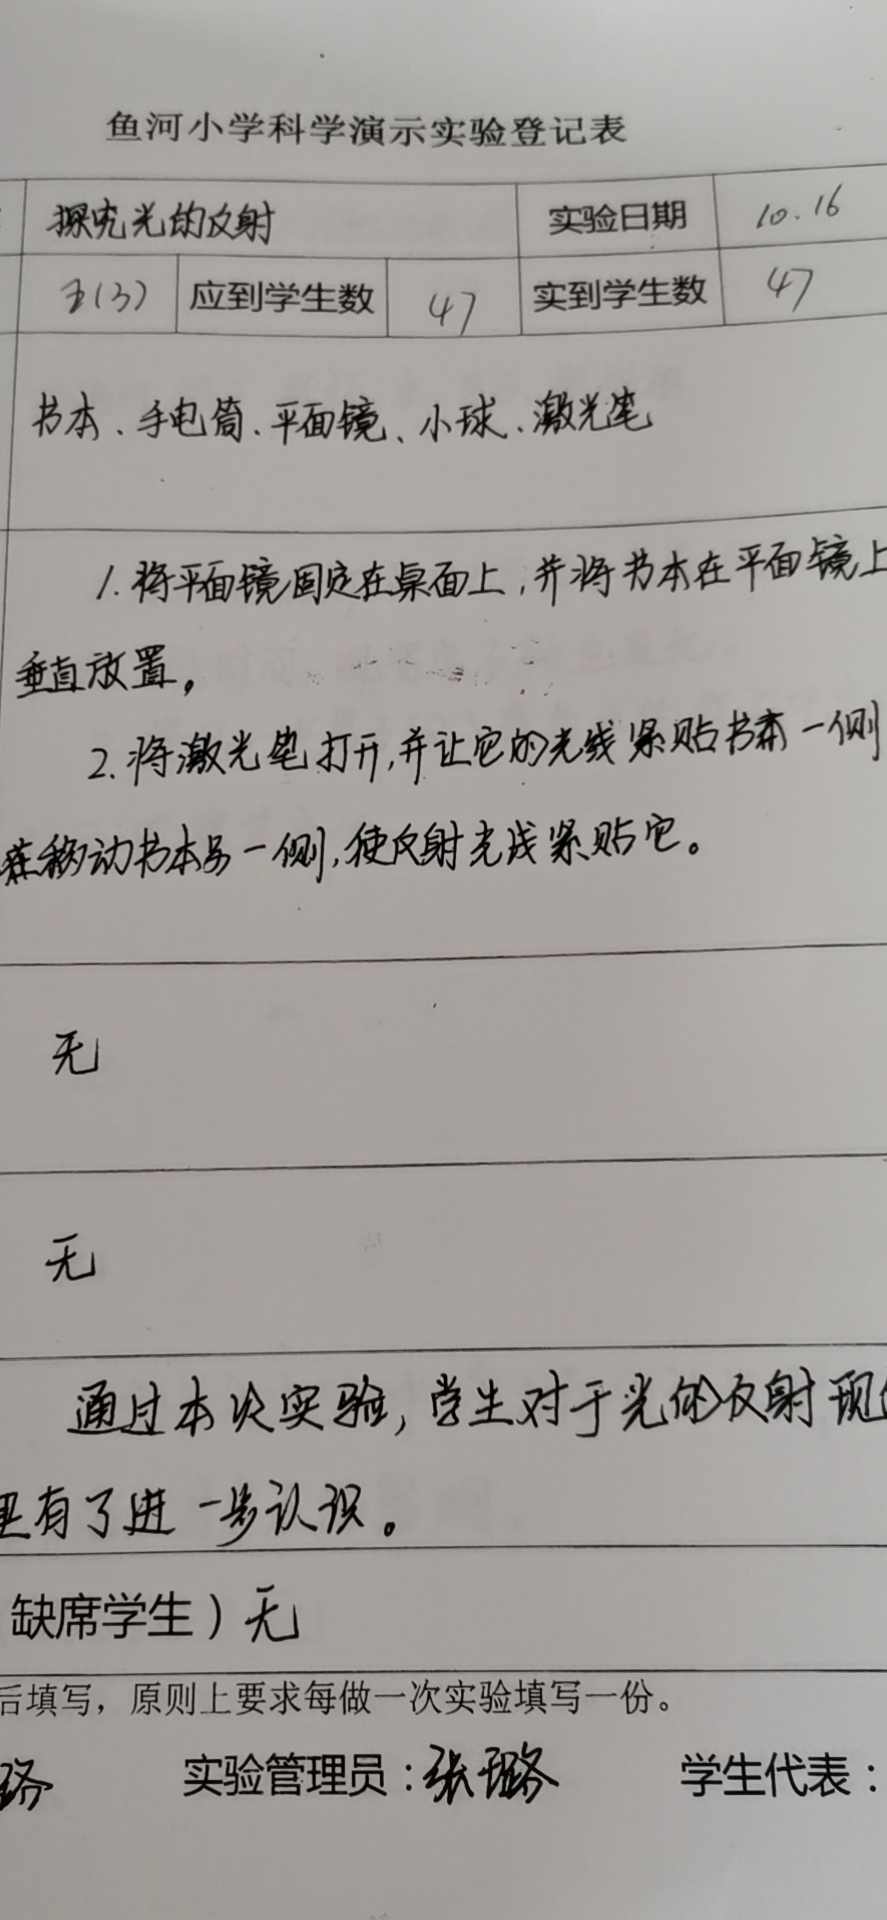 鱼河小学科学演示实验登记表
探究光的反射 实验日期 10.16
五(3) 应到学生数 47 实到学生数 47
书本、手电筒、平面镜、小球、激光笔
1.将平面镜固定在桌面上,并将书本在平面镜上
垂直放置。
2.将激光笔打开,并让它的光线紧贴书本一侧
在移动书本另一侧,使反射光线紧贴它。
无
无
通过本次实验,学生对于光的反射现
里有了进一步认识。
缺席学生)无
后填写,原则上要求每做一次实验填写一份。
璐 实验管理员:张璐 学生代表: